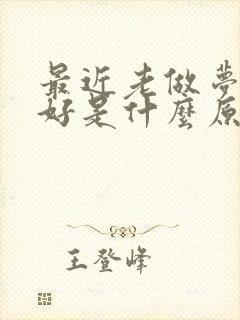 最近老做夢
好是什麼原
王登峰